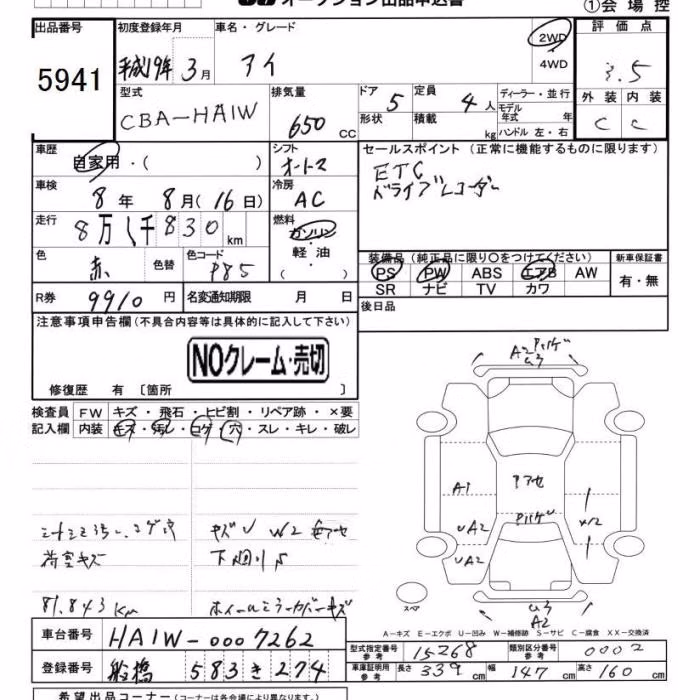 オークション出品申込書
①会場控
出品番号 5941
初度登録年月 平成19年3月
車名・グレード アイ
2WD
4WD
評価点 3.5
外装 C 内装 C
型式 CBA-HA1W
排気量 650 cc
ドア 5 定員 4人
形状 積載 kg
ディーラー・並行
モデル年式 年
ハンドル 左・右
車歴 自家用・( )
シフト オートマ
セールスポイント (正常に機能するものに限ります)
ETC
ドライブレコーダー
車検 8年 8月(16日)
冷房 AC
走行 8万1千830km
燃料 ガソリン
軽油
( )
色 赤 色替
色コード P85
装備品 (純正品に限り○をつけてください)
PS PW ABS エアB AW
SR ナビ TV カワ
新車保証書
有・無
R券 9910円
名変通知期限 月 日
後日品
注意事項申告欄(不具合内容等は具体的に記入して下さい)
NOクレーム・売切
修復歴 有〔箇所 〕
検査員記入欄
FW キズ・飛石・ヒビ割・リペア跡・×要
内装 キズ・汚レ・コゲ・穴・スレ・キレ・破レ
荷室キズ
下廻りS
81,843Km
ホイールミラーカバーキズ
A2
A1
UA2
UA2
A2
スペア
A-キズ E-エクボ U-凹み W-補修跡 S-サビ C-腐食 XX-交換済
車台番号 HA1W-0007262
登録番号 船橋 583き274
型式指定番号 参考 15268
類別区分番号 参考 0002
車庫証明用 参考 長さ 339cm 幅 147cm 高さ 160cm
希望出品コーナー(コーナーは各会場により異なります。)